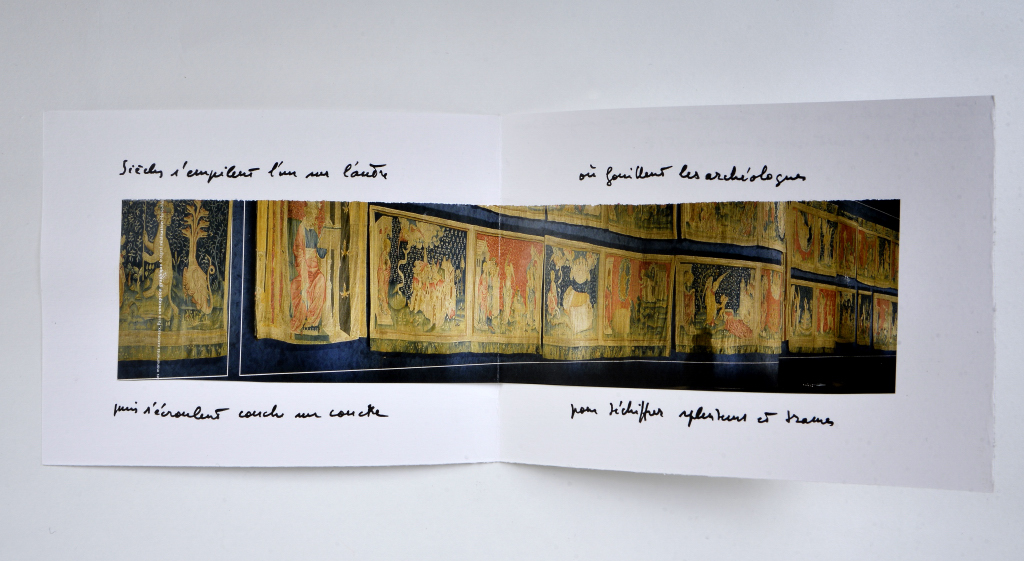 Siècles s'empilent l'un sur l'autre
puis s'écroulent couche sur couche
où fouillent les archéologues
pour déchiffrer splendeurs et trames